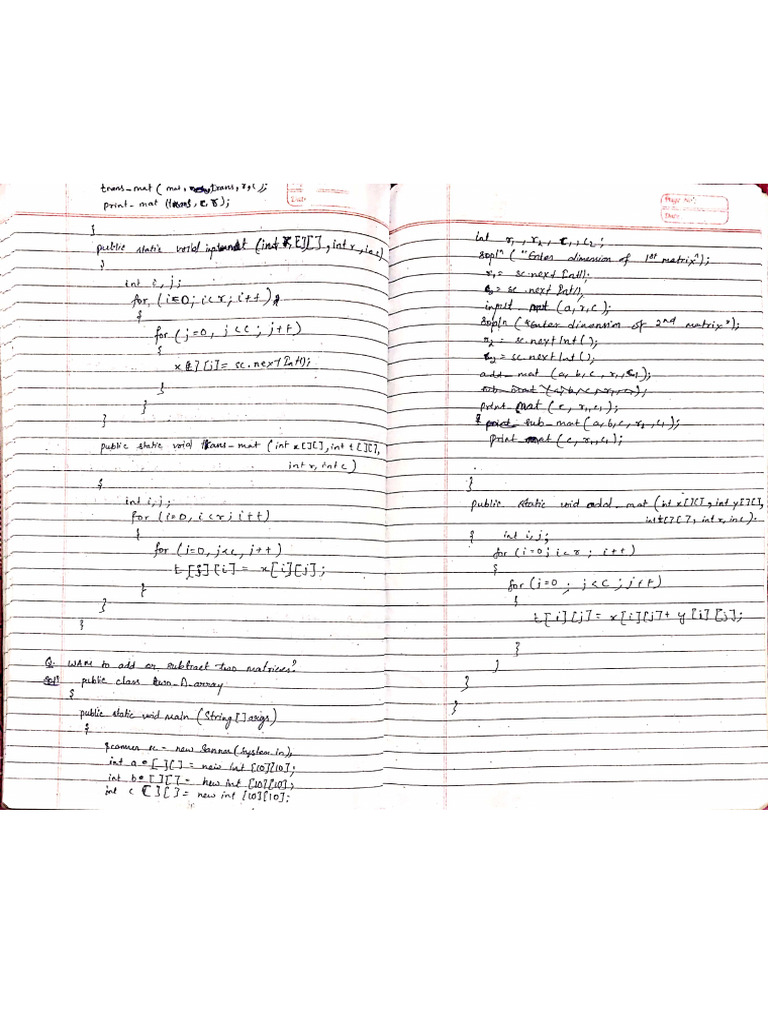 trans_mat ( mat, trans, r, c);
print_mat (trans, c, r);
}
public static void input_mat (int x[][], int r, int c)
}
int i, j;
for (i=0; i<r; i++)
{
for (j=0, j<c; j++)
{
x[i][j]= sc.nextInt();
}
}
}
public static void trans_mat (int x[][], int t[][],
int r, int c)
{
int i, j;
for (i=0, i<r; i++)
{
for (j=0, j<c, j++)
t[j][i] = x[i][j];
}
}
}
Q. WAM to add or subtract two matrices?
Sol: public class two_D_array
{
public static void main (String[] args)
{
Scanner sc = new Sanner(System.in);
int a [][] = new int [10][10];
int b [][] = new int [10][10];
int c [][] = new int [10][10];
Page No:
Date
int r1, r2, c1, c2;
sopln ("Enter dimension of 1st matrix");
r1 = sc.nextInt();
c1 = sc.nextInt();
input mat (a, r, c);
sopln ("Enter dimension of 2nd matrix");
r2 = sc.nextInt();
c2 = sc.nextInt();
add_mat (a, b, c, r1, c1);
print mat (c, r1, c1);
sub_mat (a, b, c, r1, c1);
print mat (c, r1, c1);
}
public static void add_mat (int x[][], int y[][],
int t[][], int r, in c).
{ int i, j;
for (i=0; i<r; i++)
{
for (j=0; j<c; j++)
{
t[i][j] = x[i][j] + y[i][j];
}
}
}
}